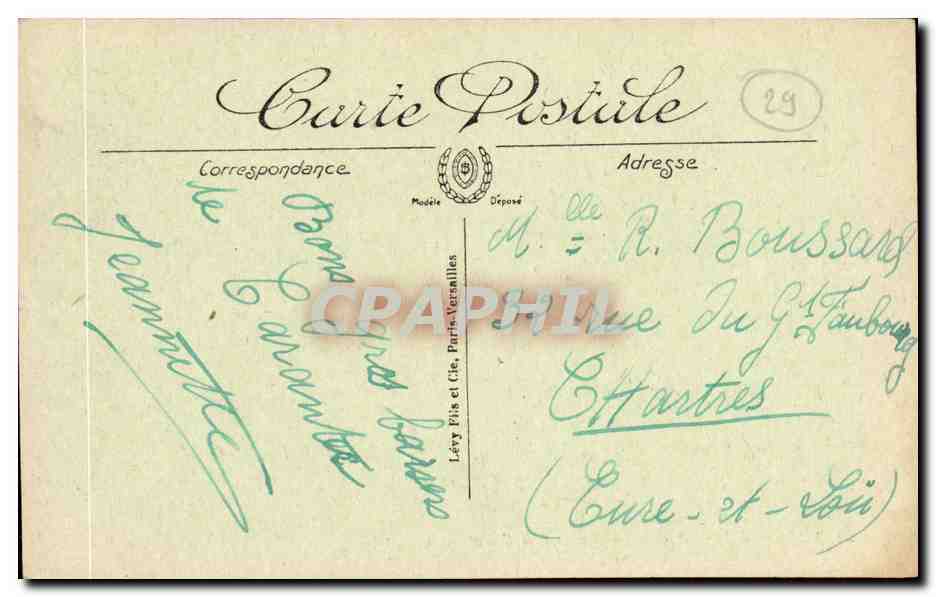 Carte Postale
29
Correspondance
Adresse
Modèle Déposé
Bons gros baisers
de
Carantec
Jeannette
Lévy Fils et Cie, Paris-Versailles
Mlle R. Boussard
rue du Gd Faubourg
CHartres
(Eure-et-Loir)
CPAPHIL